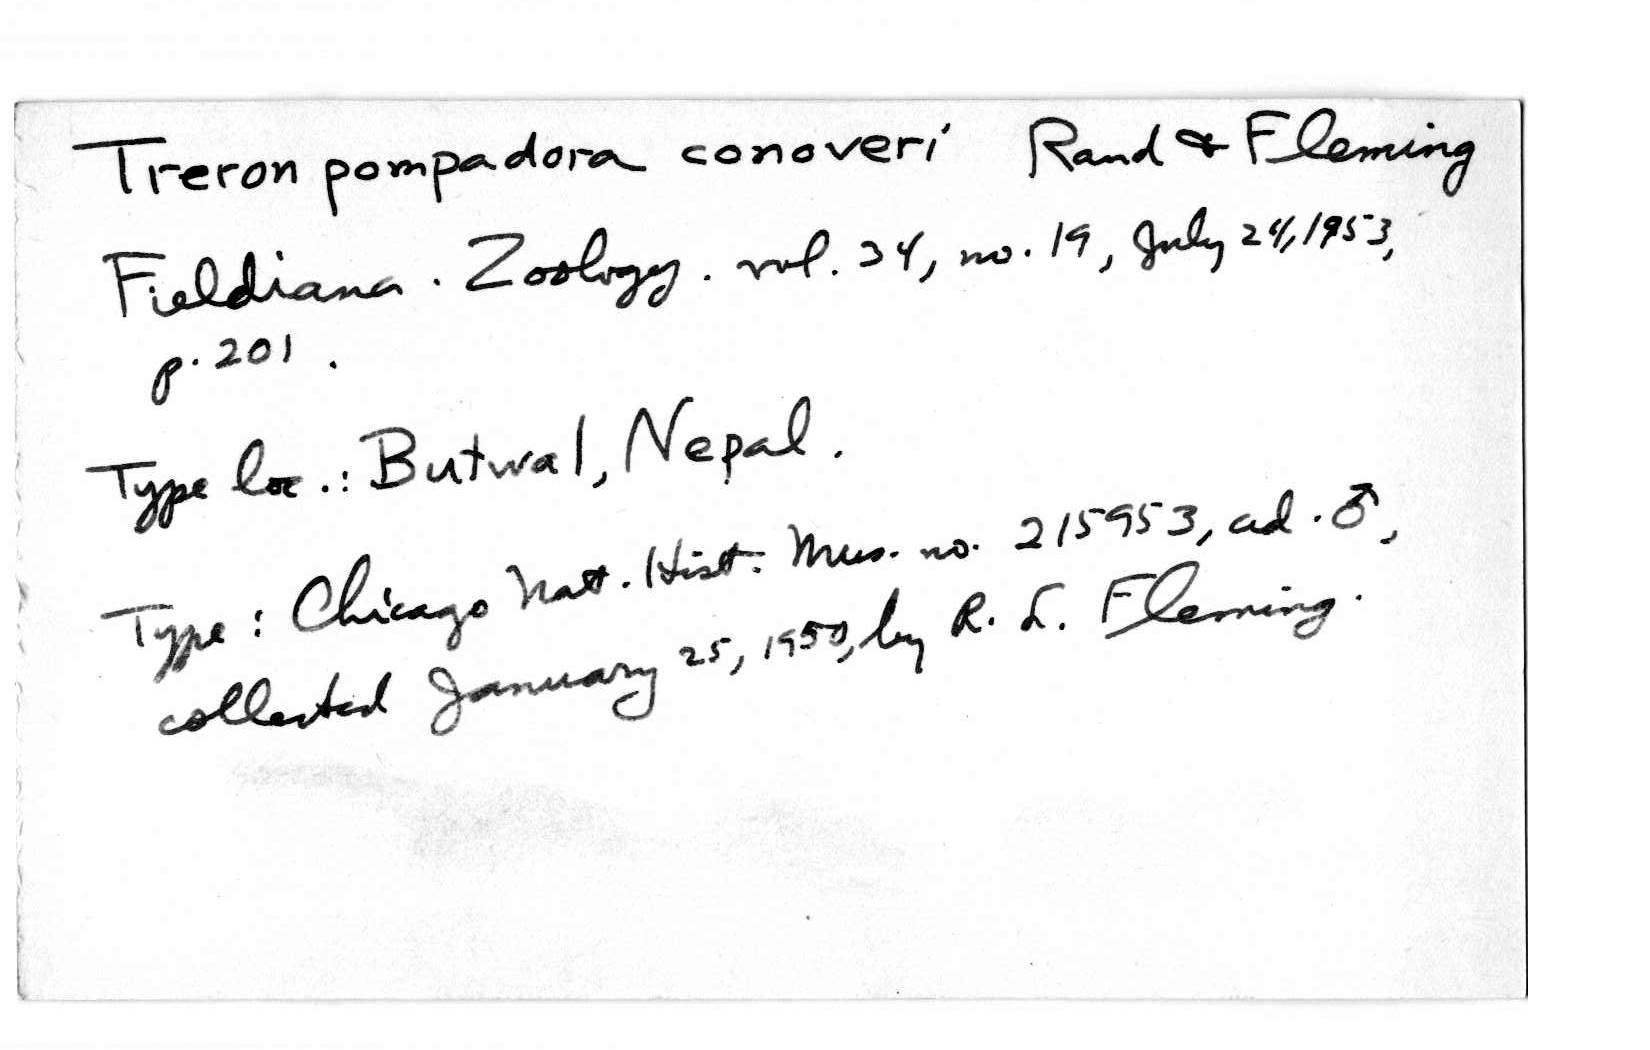 Treron pompadora conoveri Rand & Fleming
Fieldiana. Zoology. vol. 34, no. 19, July 24, 1953,
p. 201.
Type loc.: Butwal, Nepal.
Type: Chicago Nat. Hist. Mus. no. 215953, ad. ♂,
collected January 25, 1950, by R. L. Fleming.